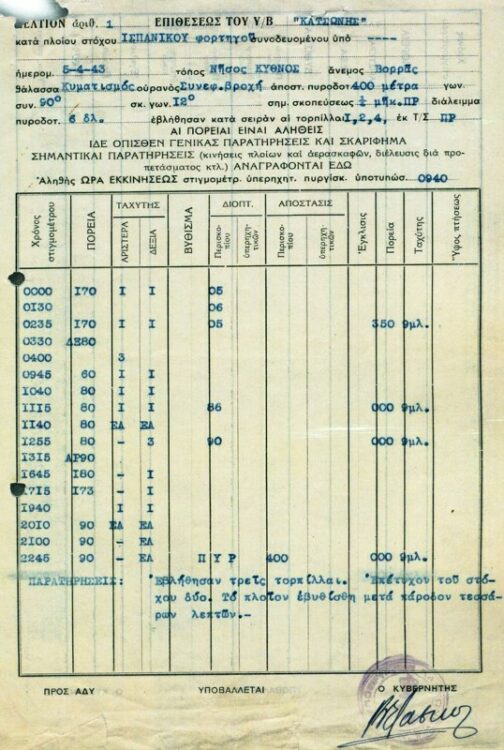 ΔΕΛΤΙΟΝ ἀριθ. 1 ΕΠΙΘΕΣΕΩΣ ΤΟΥ Υ/Β "ΚΑΤΣΩΝΗΣ"
κατά πλοίου στόχου ΙΣΠΑΝΙΚΟΥ φορτηγοῦ συνοδευομένου ὑπό ----
ἡμερομ. 5-4-43 τόπος Νῆσος ΚΥΘΝΟΣ ἄνεμος Βορρᾶς
θάλασσα Κυματισμός οὐρανός Συνεφ.βροχή ἀποστ. πυροδοτ 400 μέτρα γων.
συν. 90° σκ. γων. 18° σημ. σκοπεύσεως ½ μῆκ.ΠΡ διάλειμμα
πυροδοτ. 6 δλ. ἐβλήθησαν κατά σειράν αἱ τορπίλλαι 1,2,4, ἐκ Τ/Σ ΠΡ
ΑΙ ΠΟΡΕΙΑΙ ΕΙΝΑΙ ΑΛΗΘΕΙΣ
ΙΔΕ ΟΠΙΣΘΕΝ ΓΕΝΙΚΑΣ ΠΑΡΑΤΗΡΗΣΕΙΣ ΚΑΙ ΣΚΑΡΙΦΗΜΑ
ΣΗΜΑΝΤΙΚΑΙ ΠΑΡΑΤΗΡΗΣΕΙΣ (κινήσεις πλοίων καί ἀερασκαφῶν, διέλευσις διά προ-
πετάσματος κτλ.) ΑΝΑΓΡΑΦΟΝΤΑΙ ΕΔΩ
Ἀληθής ΩΡΑ ΕΚΚΙΝΗΣΕΩΣ στιγμομέτρ. ὑπερηχητ. πυργίσκ. ὑποτυπώσ. 0940
Χρόνος στιγμομέτρου ΠΟΡΕΙΑ ΤΑΧΥΤΗΣ ΑΡΙΣΤΕΡΑ ΔΕΞΙΑ ΒΥΘΙΣΜΑ ΔΙΟΠΤ. Περισκοπίου ὑπερηχητικῶν ΑΠΟΣΤΑΣΙΣ Περισκοπίου ὑπερηχητικῶν Ἔγκλισις Πορεία Ταχύτης Ὕψος πτήσεως
0000 170 1 1 05
0130 06
0235 170 1 1 05 350 9μλ.
0330 ΔΕ80
0400 3
0945 60 1 1
1040 80 1 1
1115 80 1 1 86 000 9μλ.
1140 80 ΕΛ ΕΛ
1255 80 - 3 90 000 9μλ.
1315 ΑΡ90
1645 180 - 1
1715 173 - 1
1940 1 1
2010 90 ΕΛ ΕΛ
2100 90 - ΕΛ
2245 90 - ΕΛ Π Υ Ρ 400 000 9μλ.
ΠΑΡΑΤΗΡΗΣΕΙΣ: Ἐβλήθησαν τρεῖς τορπίλλαι. Ἐπέτυχον τοῦ στό-
χου δύο. Τό πλοῖον ἐβυθίσθη μετά πάροδον τεσσά-
ρων λεπτῶν.-
ΠΡΟΣ ΑΔΥ ΥΠΟΒΑΛΛΕΤΑΙ Ο ΚΥΒΕΡΝΗΤΗΣ